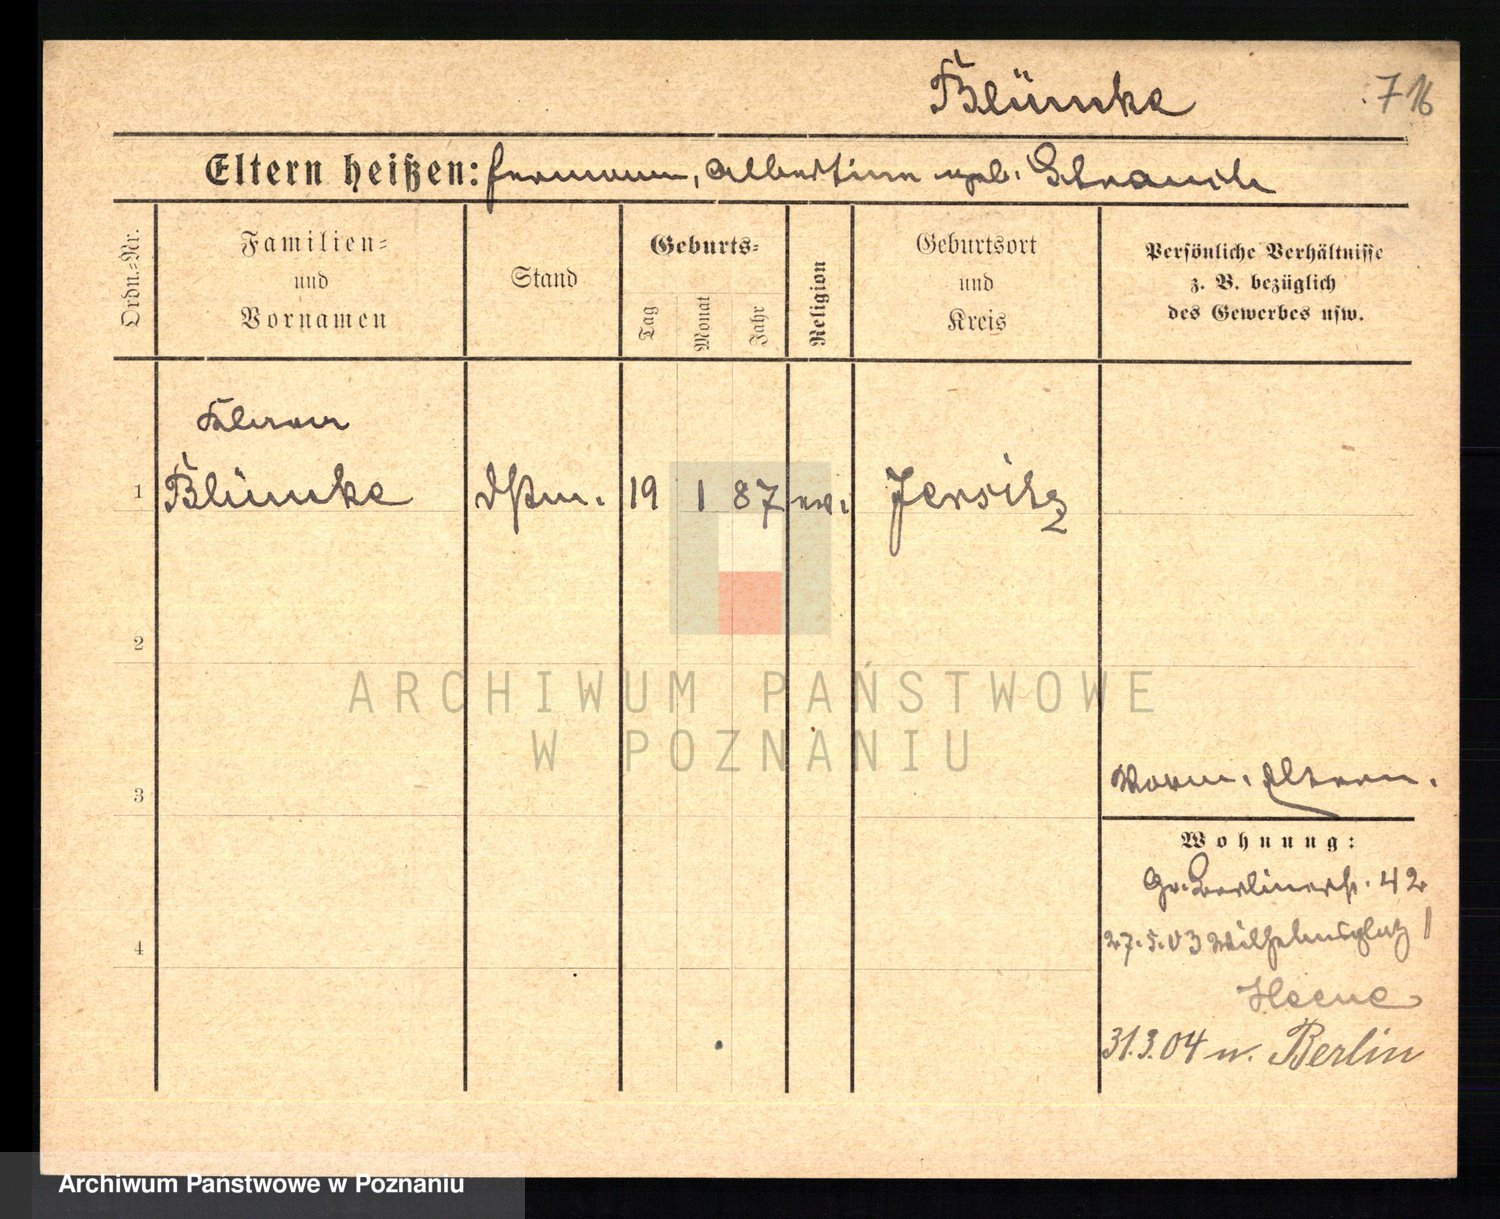 Blümke
716
Eltern heißen: Hermann, Albertine geb. Strauch
Ordn.-Nr.
Familien-
und
Vornamen
Stand
Geburts-
Tag
Monat
Jahr
Religion
Geburtsort
und
Kreis
Persönliche Verhältnisse
z. B. bezüglich
des Gewerbes usw.
1
Blümke
19 1 87 ev.
Jersitz
2
ARCHIWUM PAŃSTWOWE
W POZNANIU
3
Eltern.
Wohnung:
Gr. Berlinerstr. 42
27.5.03 Wilhelmsplatz 1
4
31.3.04 n. Berlin
Archiwum Państwowe w Poznaniu